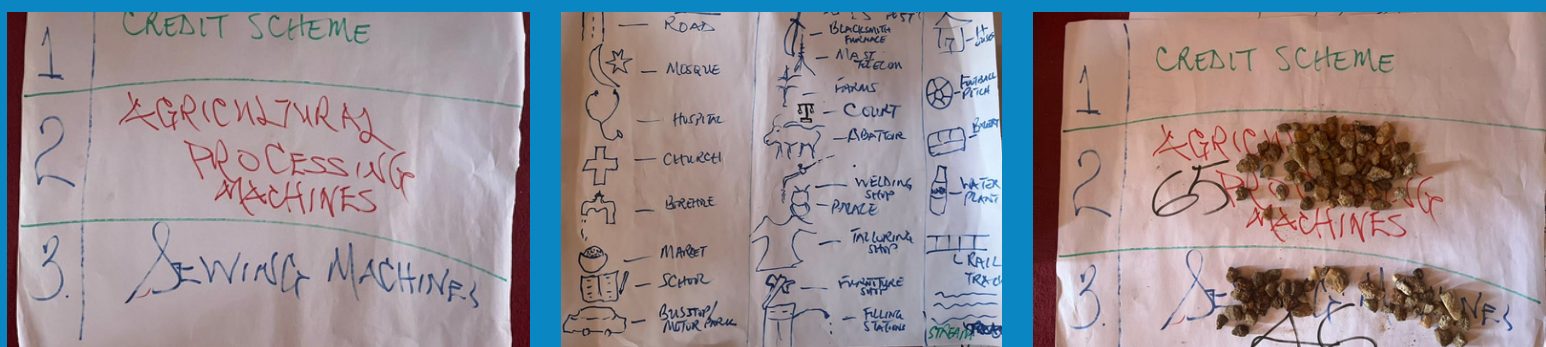 1
CREDIT SCHEME
2
AGRICULTURAL
PROCESSING
MACHINES
3.
SEWING MACHINES
ROAD
MOSQUE
HOSPITAL
CHURCH
MARKET
SCHOOL
BUSSTOP/
MOTOR PARK
POST
BLACKSMITH
FURNACE
MAST
TELECOM
FARMS
COURT
ABATTOIR
WELDING
SHOP
PALACE
TAILURING
SHOP
FURNITURE
SHOP
FILLING
STATIONS
FOOTBALL
PITCH
WATER
PLANT
RAIL
TRACK
STREAM
1
CREDIT SCHEME
2
65
MACHINES
3.